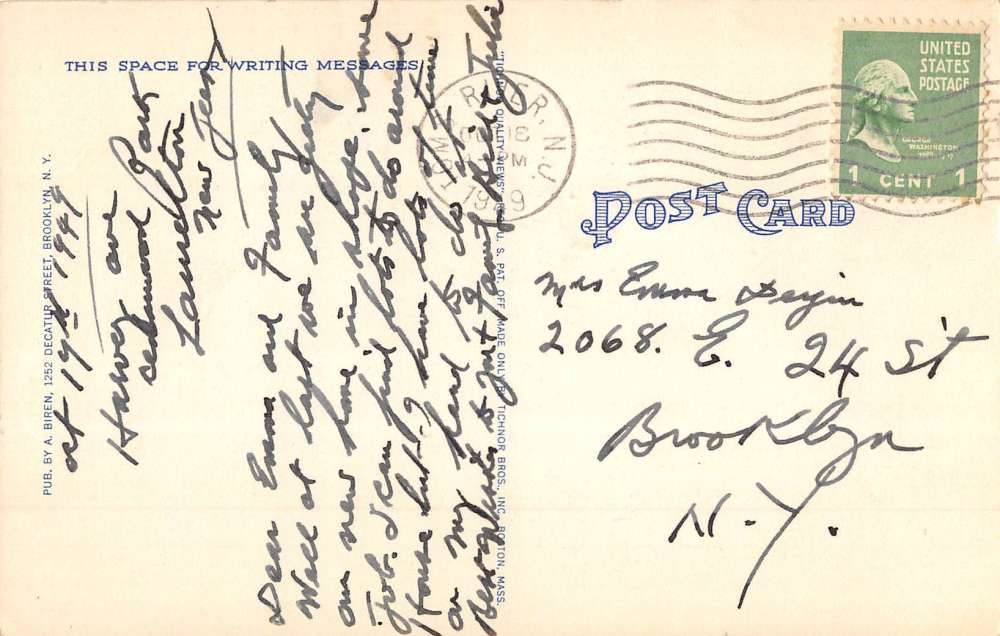 THIS SPACE FOR WRITING MESSAGES
PUB. BY A. BIREN, 1252 DECATUR STREET, BROOKLYN, N. Y.
"TICHNOR QUALITY VIEWS" REG. U. S. PAT. OFF. MADE ONLY BY TICHNOR BROS., INC. BOSTON, MASS.
Oct 19th 1949
Harvey ave
Cedarwood Park
Laurelton
New Jersey
Dear Emma and Family
Well at last we are getting
our new home in shape. Some
Job. I can find lots to do around
House but I have lots of time
on my hand to do it
Best Wishes to your Family
TOMS RIVER, N.J.
18
PM
1949
UNITED
STATES
POSTAGE
GEORGE
WASHINGTON
1 CENT 1
POST CARD
Mrs Emma
2068. E. 24 St
Brooklyn
N.Y.